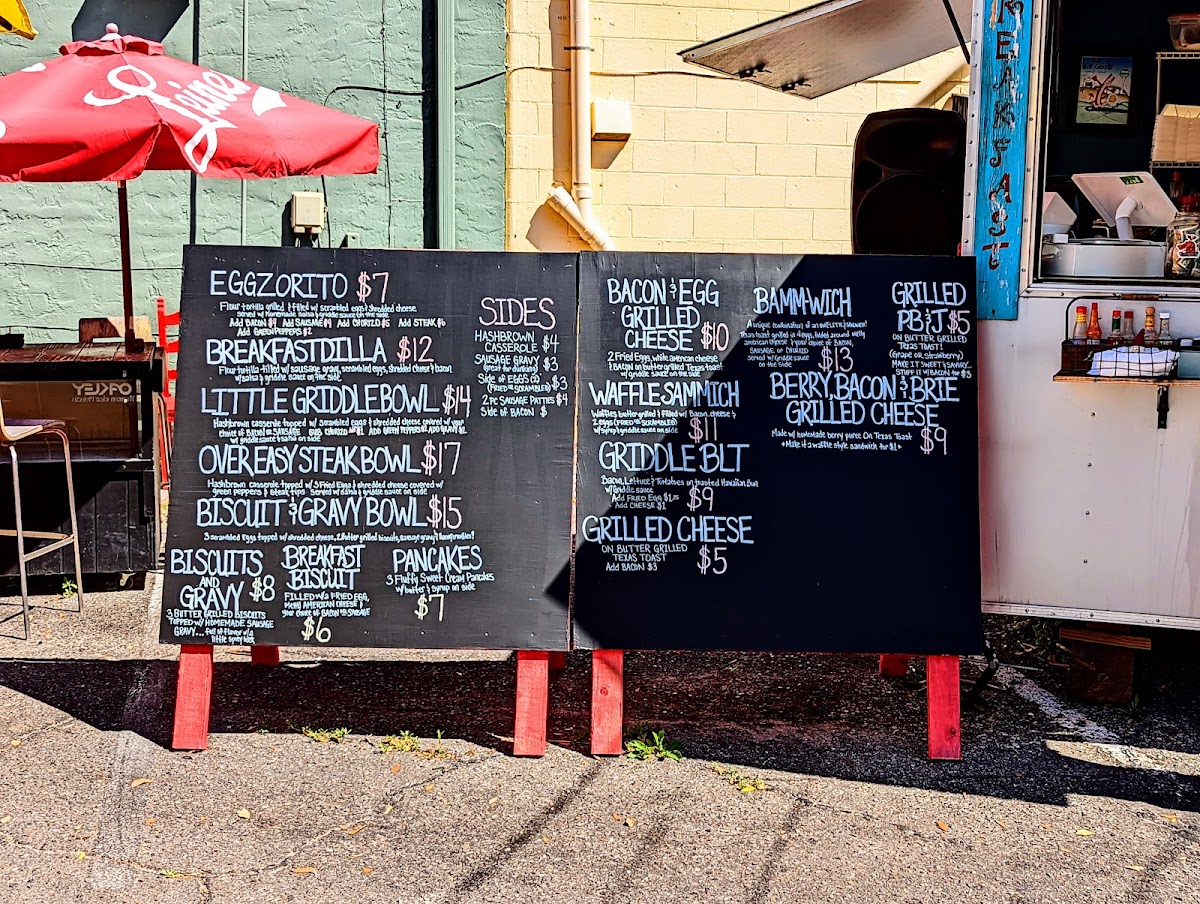 Leine
BREAKFAST
EGGZORITO $7
Flour tortilla grilled & filled w/ scrambled eggs & shredded cheese
served w/ Homemade salsa & griddle sauce on the side
Add BACON $4 Add SAUSAGE $4 Add CHORIZO $5 Add STEAK $6
Add GREEN PEPPERS $2
BREAKFASTDILLA $12
Flour tortilla w/ sausage gravy, scrambled eggs, shredded cheese & bacon
w/ salsa & griddle sauce on the side
LITTLE GRIDDLE BOWL $14
Hashbrown casserole topped w/ scrambled eggs & shredded cheese covered w/ your
choice of BACON OR SAUSAGE SUB CHORIZO ADD GREEN PEPPERS $2 ADD GRAVY $2
w/ griddle sauce & salsa on side
OVER EASY STEAK BOWL $17
Hashbrown casserole topped w/ 3 Fried Eggs & shredded cheese covered w/
green peppers & steak tips Served w/ salsa & griddle sauce on side
BISCUIT & GRAVY BOWL $15
3 scrambled Eggs topped w/ shredded cheese, 2 Butter grilled biscuits, sausage gravy &
BISCUITS
AND
GRAVY $8
3 BUTTER GRILLED BISCUITS
TOPPED W/ HOMEMADE SAUSAGE
GRAVY... full of flavor w/ a
little spicy kick
BREAKFAST
BISCUIT
FILLED W/ a FRIED EGG,
AMERICAN CHEESE &
your choice of BACON OR SAUSAGE
$6
PANCAKES
3 Fluffy Sweet Cream Pancakes
w/ butter & syrup on side
$7
SIDES
HASHBROWN
CASSEROLE $4
SAUSAGE GRAVY $3
(great for dunking)
Side of EGGS (2) $3
(FRIED OR SCRAMBLED)
2 pc SAUSAGE PATTIES $4
Side of BACON $
BACON & EGG
GRILLED
CHEESE $10
2 Fried Eggs, white american cheese
& BACON on butter grilled Texas toast
w/ griddle sauce on the side
WAFFLE SAMMICH
Waffles butter grilled & filled w/ Bacon, cheese &
2 eggs (FRIED OR SCRAMBLED)
w/ syrup & griddle sauce on side
$11
GRIDDLE BLT
Bacon, Lettuce & Tomatoes on toasted Hawaiian Bun
w/ Griddle sauce
Add FRIED EGG $1.75
Add CHEESE $1 $9
GRILLED CHEESE
ON BUTTER GRILLED
TEXAS TOAST
Add BACON $3 $5
BAMM-WICH
A unique combination of an OMELETTE & SANDWICH!
Texas toast grilled in 4 eggs, folded around melty
american cheese & your choice of BACON,
SAUSAGE OR CHORIZO
Served w/ Griddle sauce
on the side
$13
GRILLED
PB & J $5
ON BUTTER GRILLED
TEXAS TOAST!
(Grape or Strawberry)
MAKE IT SWEET & SAVORY,
STUFF IT W/ BACON for $3
BERRY, BACON & BRIE
GRILLED CHEESE
Made w/ homemade berry puree On Texas Toast
+ Make it a waffle style sandwich for $1+
$9